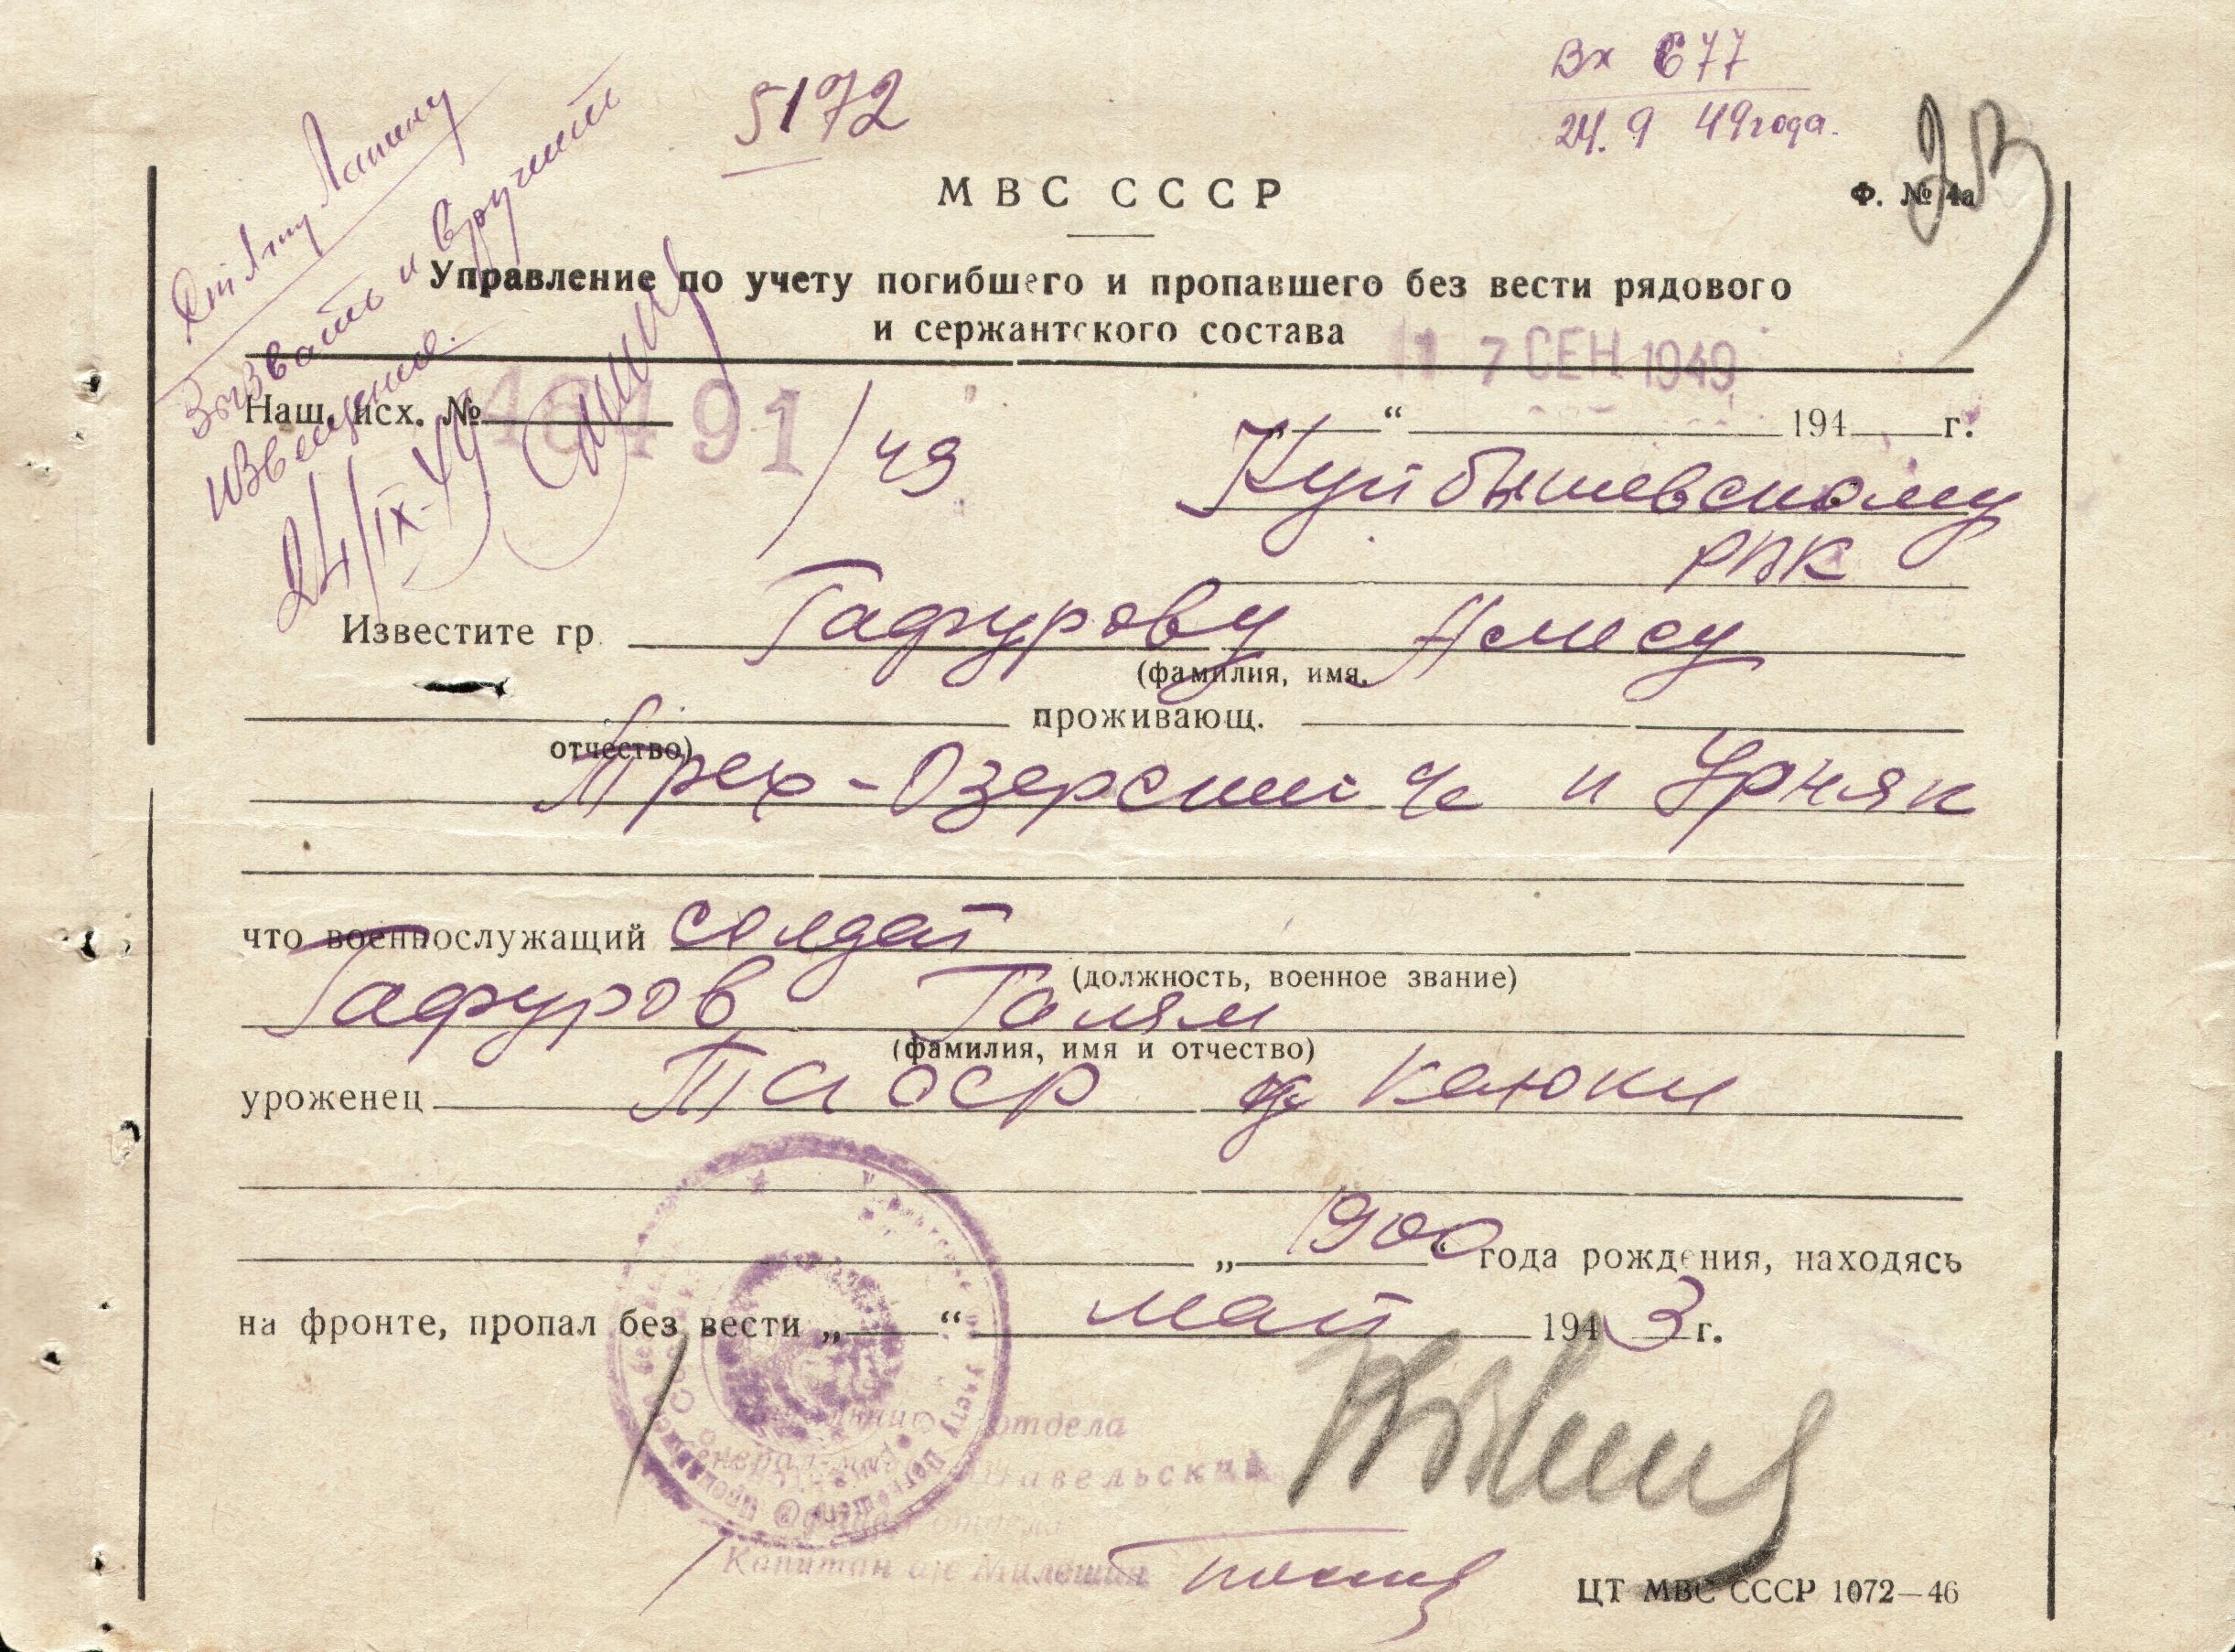 Вх 677
24. 9 49 года.
5172
Лапину
Вызвать и вручить
извещение.
24/IX-49
МВС СССР
Ф. № 4а
Управление по учету погибшего и пропавшего без вести рядового
и сержантского состава
17 СЕН 1949
Наш. исх. № 46491/49 „ “ 194 г.
Куйбышевскому
РВК
Известите гр. Гафурову
(фамилия, имя,
проживающ.
отчество)
Трех-Озерский с/с п Урняк
что военнослужащий солдат
(должность, военное звание)
Гафуров Галям
(фамилия, имя и отчество)
уроженец ТАССР Каюки
„ 1900 “ года рождения, находясь
на фронте, пропал без вести „ “ май 1943 г.
отдела
Генерал-майор Шавельский
отдела
Капитан а/с Милешин
ЦТ МВС СССР 1072—46